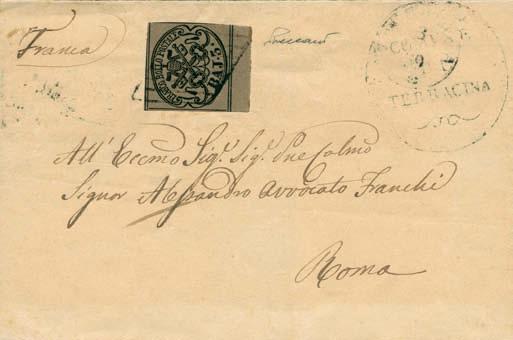 Franca
FRANCO BOLLO POSTALE
BAJ.5
TERRACINA
All' Eccmo Sig.r Sig.r Pne Colmo
Signor Alessandro Avvocato Franchi
Roma